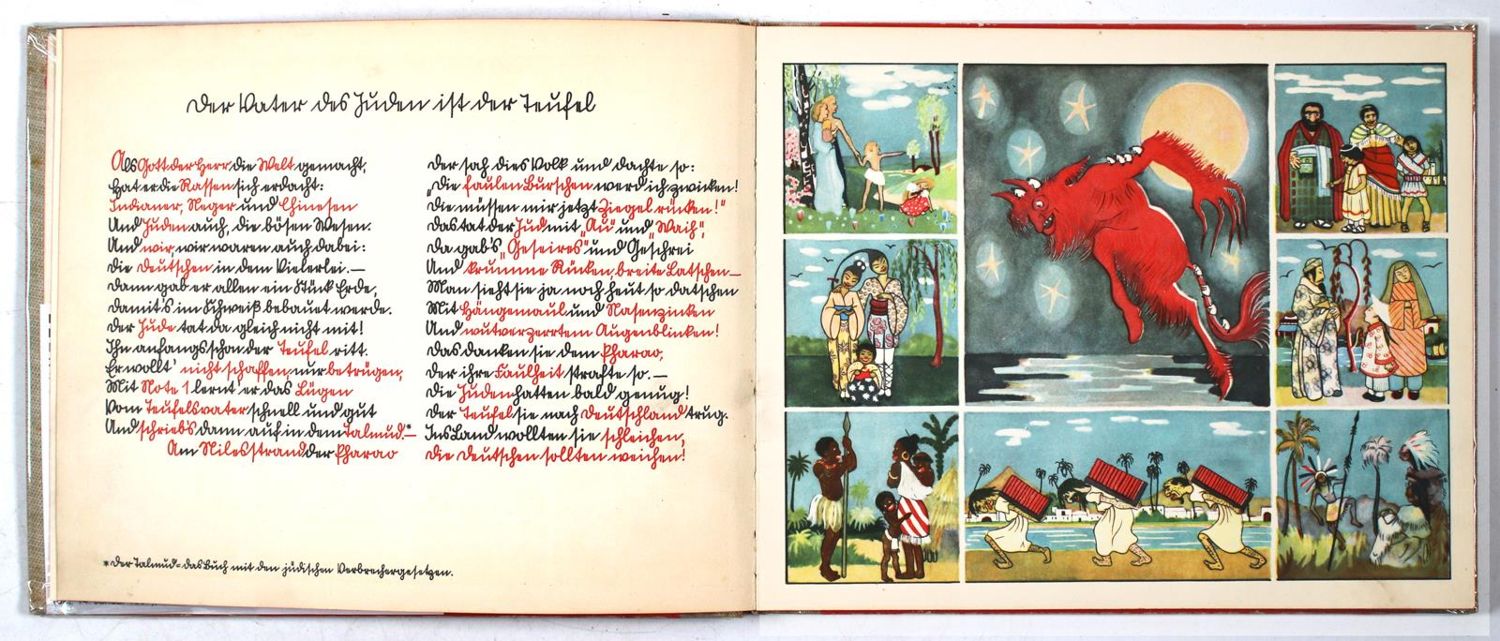 Der Vater des Juden ist der Teufel
Als Gott der Herr die Welt gemacht,
Hat er die Rassen sich erdacht:
Indianer, Neger und Chinesen
Und Juden auch, die bösen Wesen.
Und wir, wir waren auch dabei:
Die Deutschen in dem Vielerlei. —
Dann gab er allen ein Stück Erde,
Damit's im Schweiß bebauet werde.
Der Jude tat da gleich nicht mit!
Ihn anfangs schon der Teufel ritt.
Er wollt' nicht schaffen, nur betrügen,
Mit Note 1 lernt' er das Lügen
Vom Teufelsvater schnell und gut
Und schrieb's dann auf in dem Talmud.*—
Am Nilesstrand der Pharao
Der sah dies Volk und dachte so:
„Die faulen Burschen werd ich zwicken!
Die müssen mir jetzt Ziegel rücken!"
Das tat der Jud mit „Au" und „Waih",
Da gab's „Geseires" und Geschrei
Und krumme Rücken, breite Latschen—
Man sieht sie ja noch heut so datschen
Mit Hängemaul und Nasenzinken
Und wutverzerrtem Augenblinken!
Das danken sie dem Pharao,
Der ihre Faulheit strafte so. —
Die Juden hatten bald genug!
Der Teufel sie nach Deutschland trug.
Ins Land wollten sie schleichen,
Die Deutschen sollten weichen!
* Der Talmud = das Buch mit den jüdischen Verbrechergesetzen.